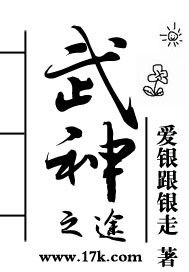 武神
之途
爱银跟银走 著
www.17k.com